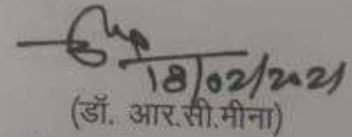 18/02/2021
(डॉ. आर.सी.मीना)